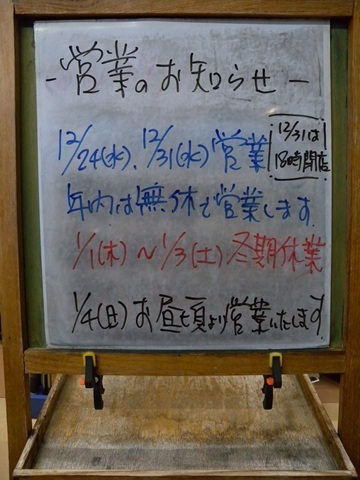 -営業のお知らせ-
12/24(水)、12/31(水)営業
12/31は
18時閉店
年内は無休で営業します
1/1(木)～1/3(土)冬期休業
1/4(日)お昼頃より営業いたします